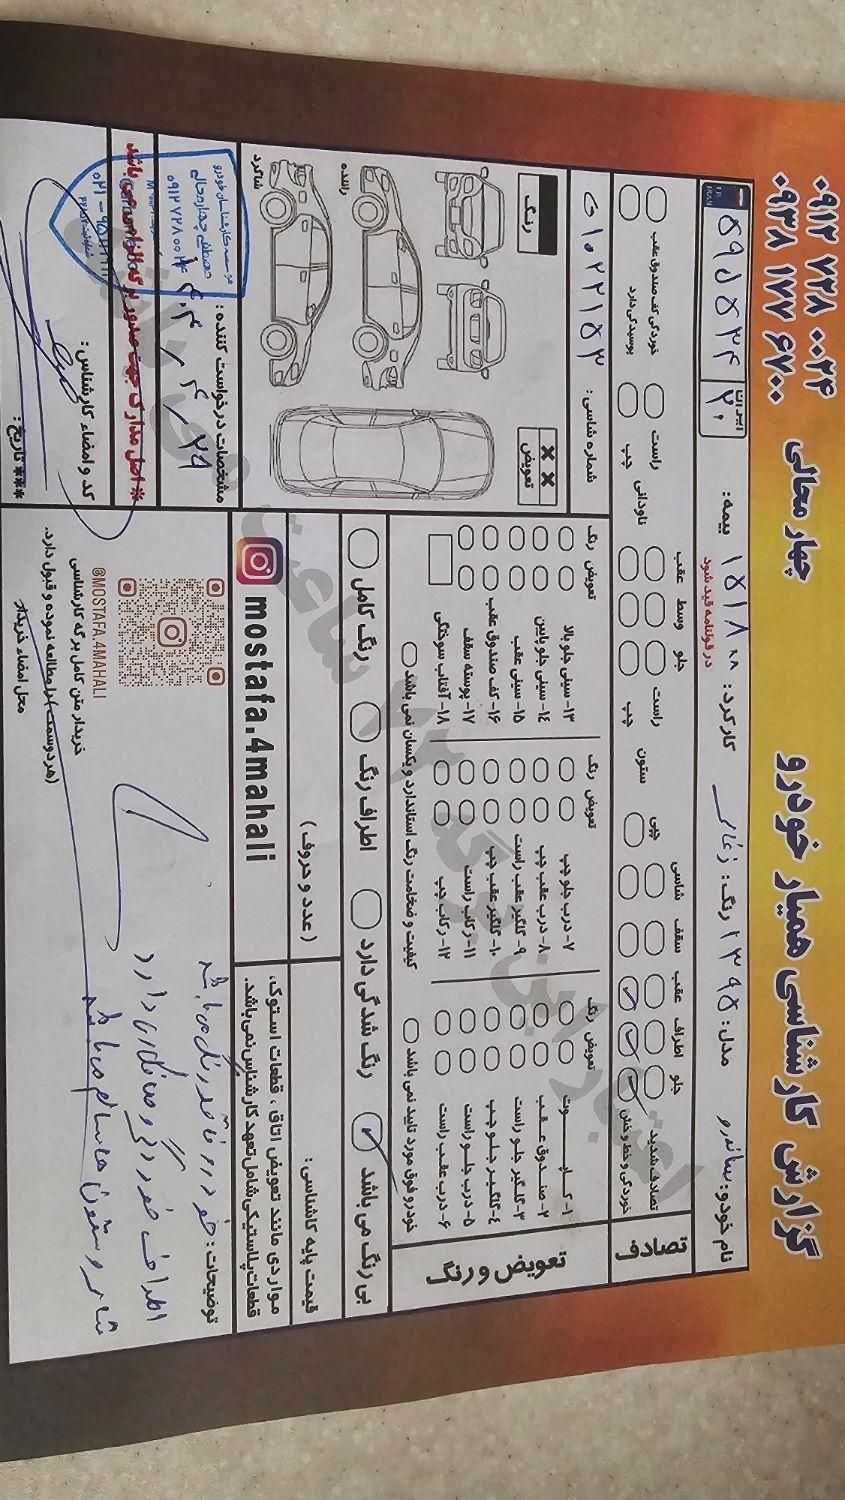 گزارش کارشناسی همیار خودرو
چهار محالی
۰۹۱۲ ۷۲۸ ۰۰۲۴
۰۹۳۸ ۱۷۷ ۶۷۰۰
نام خودرو: ساندرو
مدل: ۱۳۹۵
رنگ:
کارکرد: ۱۵۱۸۰۰
در قولنامه قید شود
بیمه:
ایران ۲۰
I.R. IRAN
تصادف
تصادف شدید
خوردگی و خط و خش
جلو
اطراف
عقب
سقف
شاسی
چپی
ستون
راست
چپ
جلو
وسط
عقب
ناودانی
راست
چپ
خوردگی کف صندوق عقب
پوسیدگی دارد
تعویض و رنگ
رنگ
تعویض
۱- کاپوت
۲- صندوق عقب
۳- گلگیر جلو راست
۴- گلگیر جلو چپ
۵- درب جلو راست
۶- درب عقب راست
خودرو فوق مورد تایید نمی باشد
رنگ
تعویض
۷- درب جلو چپ
۸- درب عقب چپ
۹- گلگیر عقب راست
۱۰- گلگیر عقب چپ
۱۱- رکاب راست
۱۲- رکاب چپ
کیفیت و ضخامت رنگ استاندارد و یکسان نمی باشد
رنگ
تعویض
۱۳- سینی جلو بالا
۱۴- سینی جلو پایین
۱۵- سینی عقب
۱۶- کف صندوق عقب
۱۷- پوسته سقف
۱۸- آفتاب سوختگی
شماره شاسی:
رنگ
×× ×× تعویض
راننده
شاگرد
بی رنگ می باشد
رنگ شدگی دارد
اطراف رنگ
رنگ کامل
قیمت پایه کارشناسی:
(عدد و حروف)
مواردی مانند تعویض اتاق، قطعات استوک،
قطعات پلاستیکی شامل تعهد کارشناس نمی باشد.
mostafa.4mahali
توضیحات: خودرو فاقد رنگ می باشد
اطراف خوردگی و صافکاری دارد
شاسی و ستون ها سالم می باشد
مشخصات درخواست کننده:
* اصل مدارک جهت صدور برگه الزامی می باشد
کد و امضاء کارشناس:
*** تاریخ:
موسسه کارشناسان خودرو
مصطفی چهارمحالی
۰۹۱۲۷۲۸۰۰۲۴
@MOSTAFA.4MAHALI
خریدار متن کامل برگه کارشناسی
(هر دو سمت) را مطالعه نموده و قبول دارد.
محل امضاء خریدار